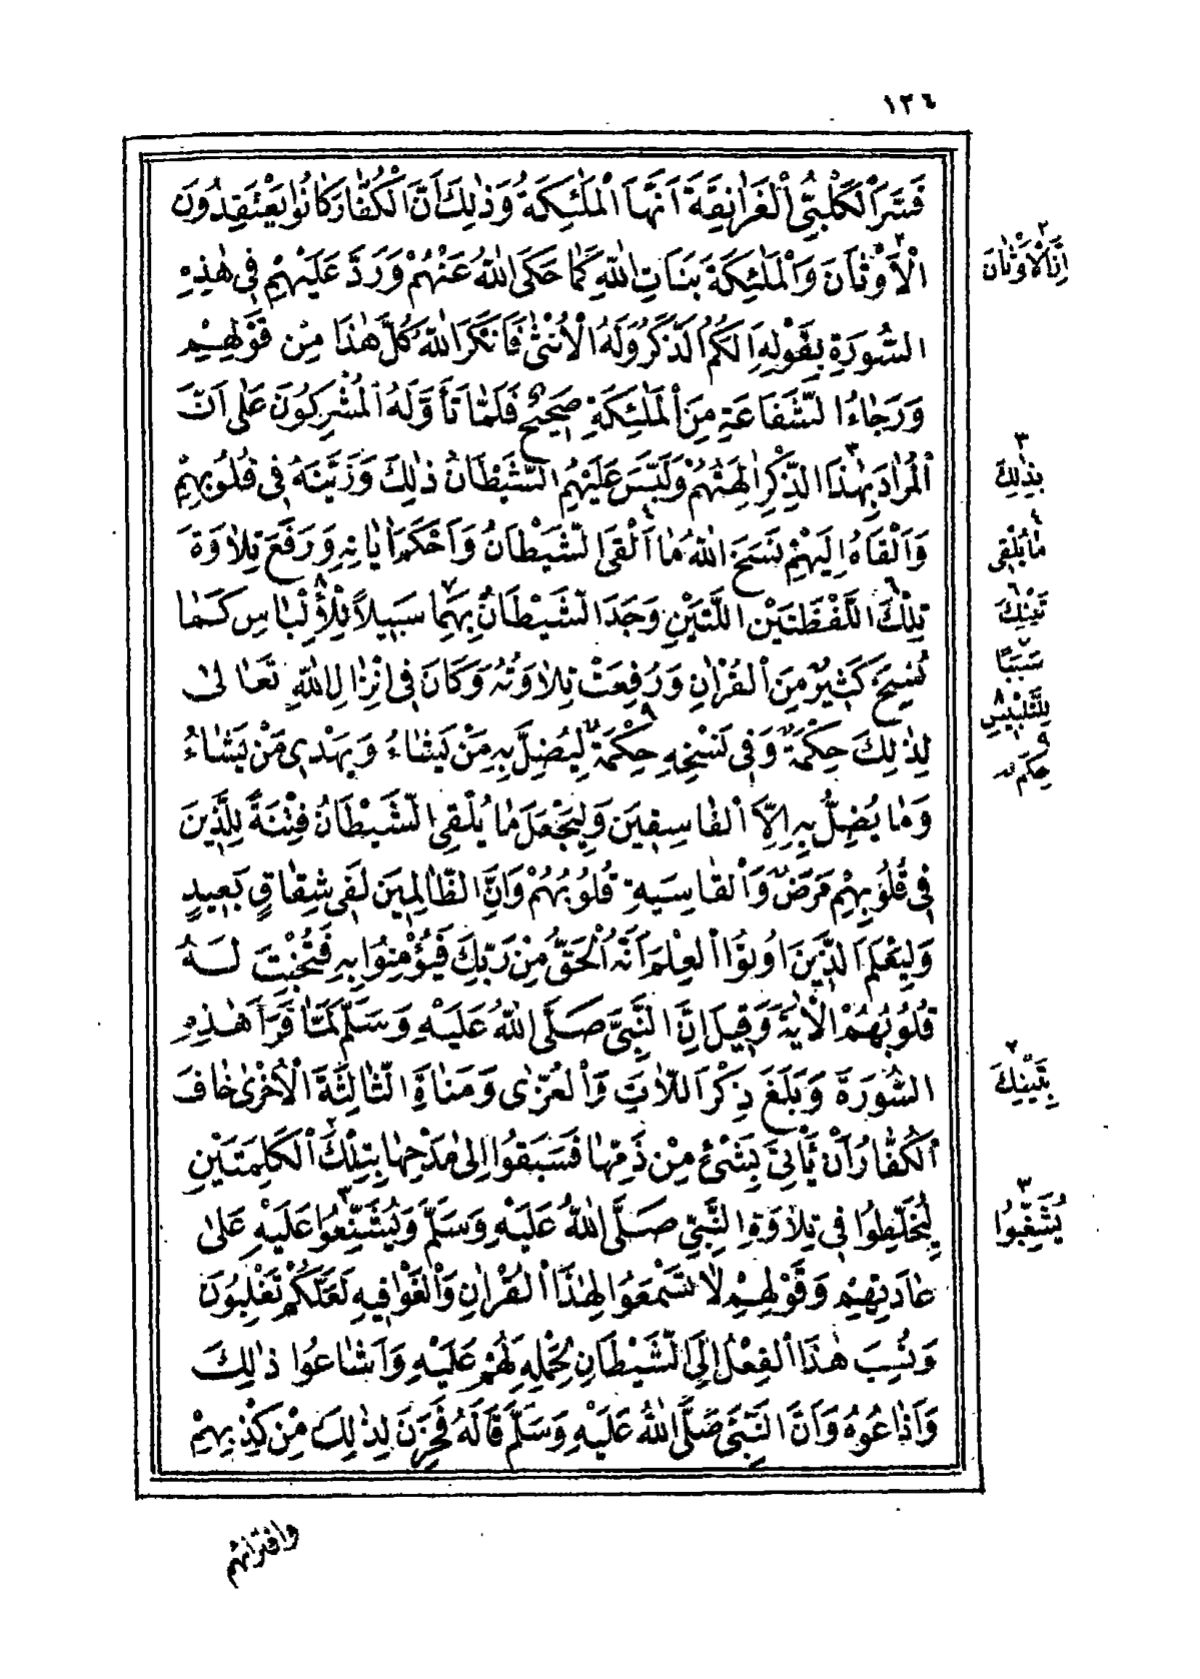 ١٢٤
فَسَّرَ الْكَلْبِيُّ الْغَرَانِقَةَ اَنَّهَا الْمَلٰئِكَةُ وَذٰلِكَ اَنَّ الْكُفَّارَ كَانُوا يَعْتَقِدُونَ
الْاَوْثَانَ وَالْمَلٰئِكَةَ بَنَاتِ اللّٰهِ كَمَا حَكَى اللّٰهُ عَنْهُمْ وَرَدَّ عَلَيْهِمْ فِي هٰذِهِ
السُّورَةِ بِقَوْلِهِ اَلَكُمُ الذَّكَرُ وَلَهُ الْاُنْثٰى فَاَنْكَرَ اللّٰهُ كُلَّ هٰذَا مِنْ قَوْلِهِمْ
وَرَجَاءُ الشَّفَاعَةِ مِنَ الْمَلٰئِكَةِ صَحِيحٌ فَلَمَّا تَأَوَّلَهُ الْمُشْرِكُونَ عَلٰى اَنَّ
الْمُرَادَ بِهٰذَا الذِّكْرِ اٰلِهَتُهُمْ وَلَبَّسَ عَلَيْهِمُ الشَّيْطَانُ ذٰلِكَ وَزَيَّنَهُ فِي قُلُوبِهِمْ
وَاَلْقَاهُ اِلَيْهِمْ نَسَخَ اللّٰهُ مَا اَلْقَى الشَّيْطَانُ وَاَحْكَمَ اٰيَاتِهِ وَرَفَعَ تِلَاوَةَ
تِلْكَ اللَّفْظَتَيْنِ اللَّتَيْنِ وَجَدَ الشَّيْطَانُ بِهِمَا سَبِيلًا لِلْاِلْبَاسِ كَمَا
نُسِخَ كَثِيرٌ مِنَ الْقُرْاٰنِ وَرُفِعَتْ تِلَاوَتُهُ وَكَانَ فِي اِنْزَالِ اللّٰهِ تَعَالٰى
لِذٰلِكَ حِكْمَةٌ وَفِي نَسْخِهِ حِكْمَةٌ لِيُضِلَّ بِهِ مَنْ يَشَاءُ وَيَهْدِيَ مَنْ يَشَاءُ
وَمَا يُضِلُّ بِهِ اِلَّا الْفَاسِقِينَ وَلِيَجْعَلَ مَا يُلْقِي الشَّيْطَانُ فِتْنَةً لِلَّذِينَ
فِي قُلُوبِهِمْ مَرَضٌ وَالْقَاسِيَةِ قُلُوبُهُمْ وَاِنَّ الظَّالِمِينَ لَفِي شِقَاقٍ بَعِيدٍ
وَلِيَعْلَمَ الَّذِينَ اُوتُوا الْعِلْمَ اَنَّهُ الْحَقُّ مِنْ رَبِّكَ فَيُؤْمِنُوا بِهِ فَتُخْبِتَ لَهُ
قُلُوبُهُمْ الْاٰيَةَ وَقِيلَ اِنَّ النَّبِيَّ صَلَّى اللّٰهُ عَلَيْهِ وَسَلَّمَ لَمَّا قَرَأَ هٰذِهِ
السُّورَةَ وَبَلَغَ ذِكْرَ اللَّاتِ وَالْعُزّٰى وَمَنَاةَ الثَّالِثَةَ الْاُخْرٰى خَافَ
الْكُفَّارُ اَنْ يَأْتِيَ بِشَيْءٍ مِنْ ذَمِّهَا فَسَبَقُوا اِلٰى مَدْحِهَا بِتِلْكَ الْكَلِمَتَيْنِ
لِيُخَلِّطُوا فِي تِلَاوَةِ النَّبِيِّ صَلَّى اللّٰهُ عَلَيْهِ وَسَلَّمَ وَيُشَنِّعُوا عَلَيْهِ عَلٰى
عَادَتِهِمْ وَقَوْلِهِمْ لَا تَسْمَعُوا لِهٰذَا الْقُرْاٰنِ وَالْغَوْا فِيهِ لَعَلَّكُمْ تَغْلِبُونَ
وَنُسِبَ هٰذَا الْفِعْلُ اِلَى الشَّيْطَانِ لِحَمْلِهِ لَهُمْ عَلَيْهِ وَاَشَاعُوا ذٰلِكَ
وَاَذَاعُوهُ وَاَنَّ النَّبِيَّ صَلَّى اللّٰهُ عَلَيْهِ وَسَلَّمَ قَالَهُ فَحَزِنَ لِذٰلِكَ مِنْ كَذِبِهِمْ
وافترائهم
٢
اَنَّ الْاَوْثَانَ
٣
بِذٰلِكَ
٤
مَا يُلْقِي
٦
تَيْنِكَ
٧
سَبَبًا
٨
لِلتَّلْبِيسِ
٩
حِكَم
٢
بِتَيْنِكَ
٣
يُشَغِّبُوا